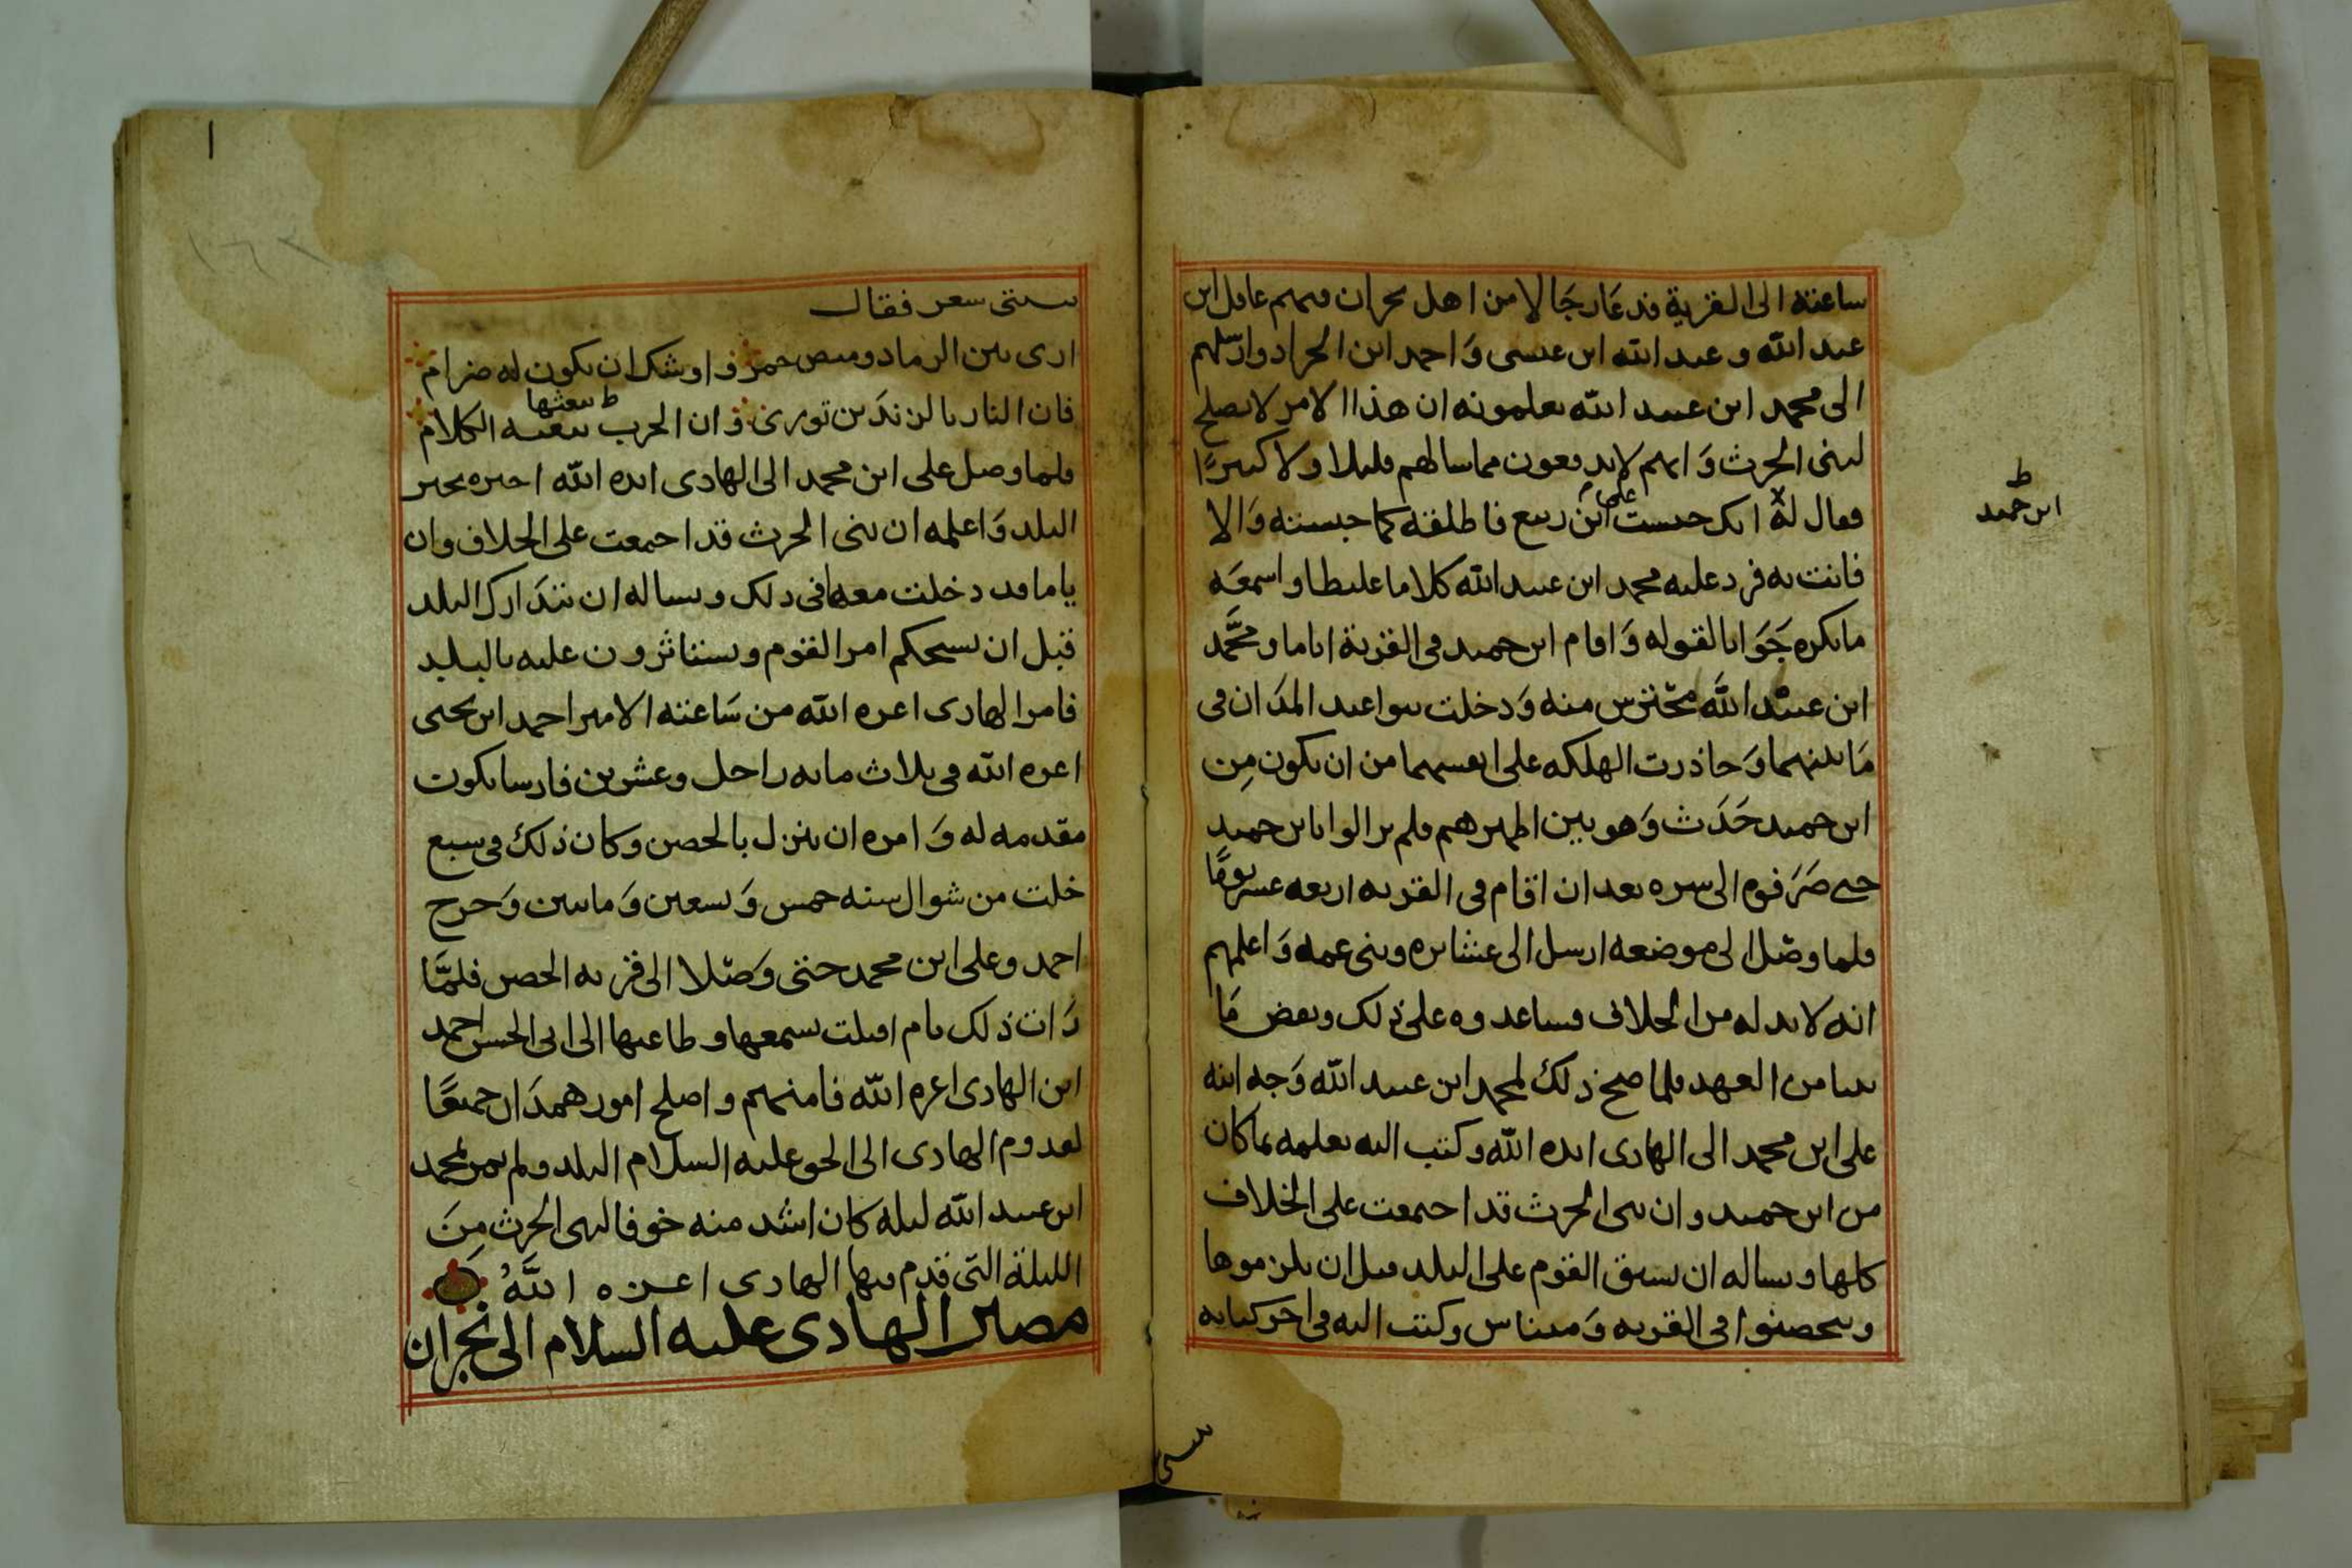 ساعته الى القرية فدعا رجالا من اهل نجران منهم عاقل ابن
عبد الله و عبد الله ابن عيسى وَاحمد ابن الجراد وارسلهم
الى محمد ابن عبيد الله يعلمونه ان هذا الامر لا يصلح
لبنى الحرث وَانهم لا يدفعون مما سالهم قليلا ولا كبيرًا
فقال له انك حبست على ابن ربيع فاطلقه كما حبسته وَالا
ابن حميد
فانت به فرد عليه محمد ابن عبيد الله كلاما غليظا واسمعَه
ما يكره جَوَابا لقوله وَاقام ابن حميد فى القرية اياما ومحَّمد
ابن عبيْد الله محترس منه وَدخلت بنوا عبد المدَان فى
مَا بينهما وَحاذرت الهلكه على انفسهما من ان يكون مِن
ابن حميد حَدَث وَهو بين اظهرهم فلم يزالوا بابن حميد
حتى صَرَفوه الى سره بعد ان اقام فى القريه اربعه عشر يومًا
فلما وصَل الى موضعه ارسل الى عشايره وبنى عمه وَاعلمهم
انه لابد له من الخلاف فساعدوه على ذلك وبعض مَا
بينا من العهد فلما صح ذلك لمحمد ابن عبيد الله وَجه ابنه
على ابن محمد الى الهادى ايده الله وكتب اليه يعلمه بما كان
من ابن حميد وان بنى الحرث قد اجمعت على الخلاف
كلها ويساله ان يسبق القوم على البلد قبل ان يلزموها
ويتحصنوا فى القريه وَميناس وكتب اليه فى اخر كتابه
ببيتى
ا
ببيتى شعر فقال
ارى بين الرماد وميض جمر ۞ واوشك ان يكون له ضرام
فان النار بالزندَين تورى ۞ وان الحرب يبعثه الكلام
ط يبعثها
فلما وصل على ابن محمد الى الهادى ايده الله اخبره بخبر
البلد وَاعلمه ان بنى الحرث قد اجمعت على الخلاف وان
ياما قد دخلت معها فى ذلك ويساله ان يتدَارك البلد
قبل ان يستحكم امر القوم ويستاثرون عليه بالبلد
فامر الهادى اعزه الله من سَاعته الامير احمد ابن يحيى
اعزه الله فى ثلاث مايه راجل وعشرين فارسا يكون
مقدمه له وَامره ان ينزل بالحصن وكان ذلك فى سبع
خلت من شوال سنه خمس وَتسعين وَمايتين وَخرج
احمد وعلى ابن محمد حتى وَصَلا الى قريه الحصن فلمَّا
رَات ذلك يام اقبلت بسمعها وطاعتها الى ابى الحسن احمد
ابن الهادى اعزه الله فامنهم واصلح امور همدَان جميعًا
لقدوم الهادى الى الحق عليه السلام البلد ولم يمر لمحمد
ابن عبيد الله ليله كان اشد منه خوفا لبنى الحرث مِنَ
الليلة التى قدم فيها الهادى اعزه اللهُ
مصير الهادى عليه السلام الى نجران